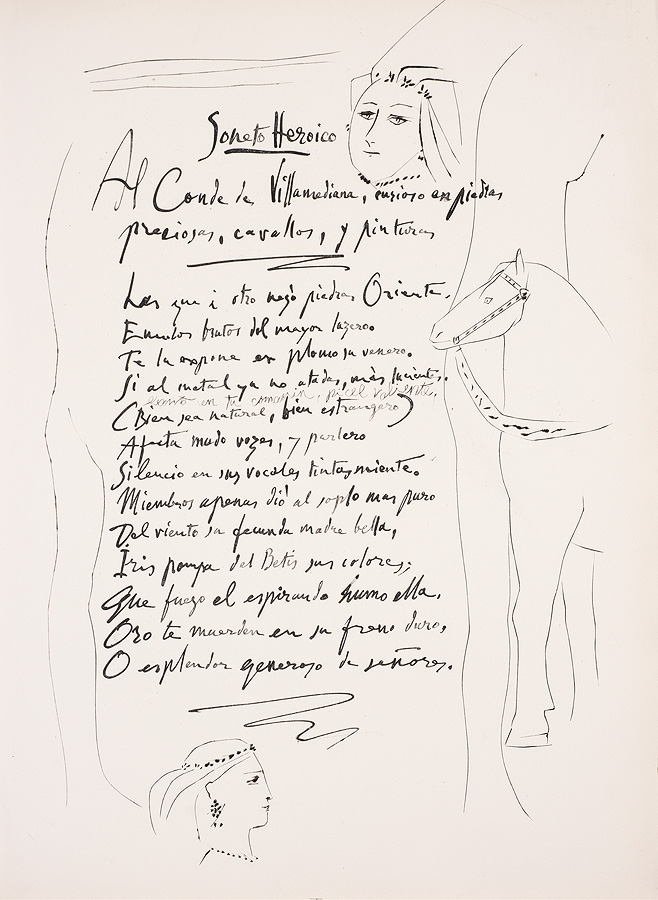 Soneto Heroico
Al Conde de Villamediana, curioso en piedras
preciosas, cavallos, y pinturas
Las que à otro negò piedras Oriente.
Emulos brutos del mayor luzero.
Te la expone en plomo su venero.
Si al metal ya no atadas, más lucientes.
quanto en tu camarin, pincel valiente,
(Bien sea natural, bien estrangero)
Afecta mudo vozes, y parlero
Silencio en sus vocales tintas miente.
Miembros apenas dió al soplo mas puro
Del viento su fecunda madre bella,
Iris pompa del Betis sus colores;
Que fuego el espirando humo ella.
Oro te muerden en su freno duro,
O esplendor generoso de señores.